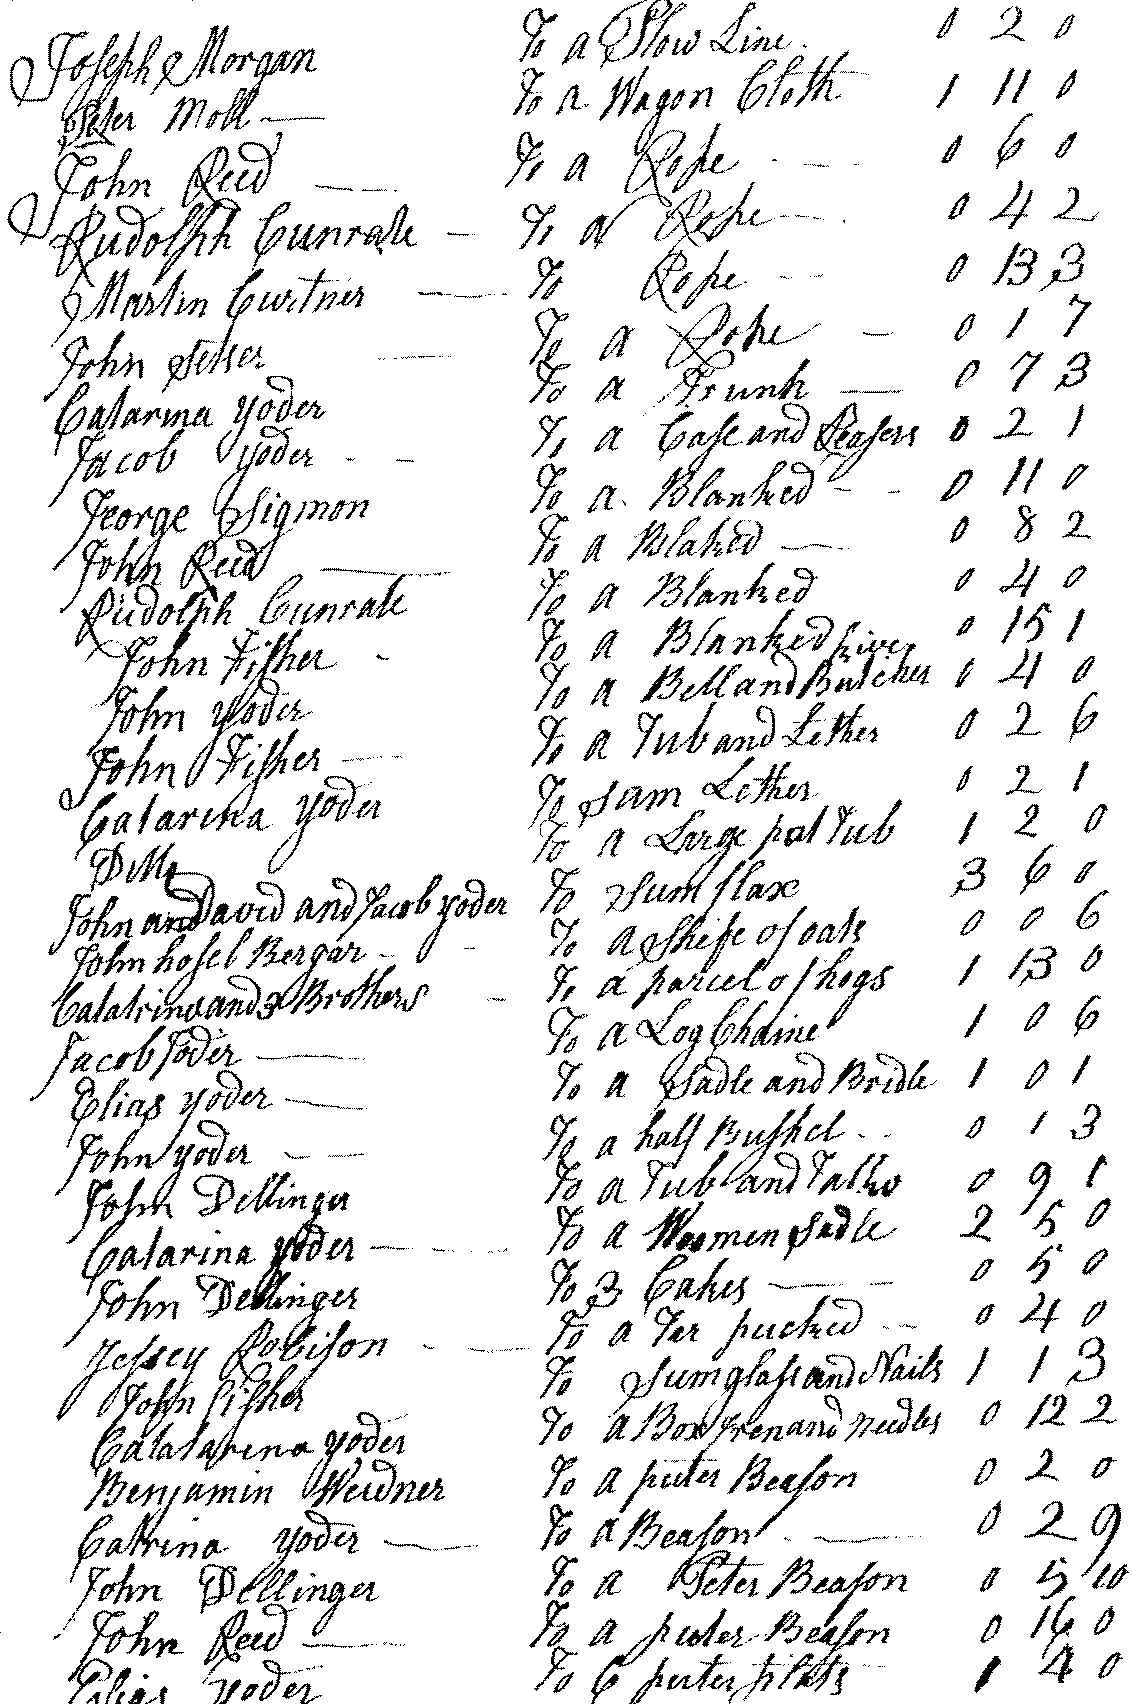 Joseph Morgan To a Plow Line 0 2 0
Peter Moll To a Wagon Cloth 1 11 0
John Reed To a Rope 0 6 0
Rudolph Cunrate To a Rope 0 4 2
Martin Curtner To Rope 0 13 3
John Setser To a Rope 0 1 7
Catarina yoder To a Trunk 0 7 3
Jacob yoder To a Case and Reasers 0 2 1
George Sigmon To a Blanked 0 11 0
John Reed To a Blaked 0 8 2
Rudolph Cunrate To a Blanked 0 4 0
John Fisher To a Blanked 0 15 1
John yoder To a Bell and Butcher knive 0 4 0
John Fisher To a Tub and Lether 0 2 6
Catarina yoder To Sum Lether 0 2 1
Ditto To a Large Tub 1 2 0
John and David and Jacob yoder To Sum flax 3 6 0
John hosel Bergar To a Shife of oats 0 0 6
Catatrina and 3 Brothers To a parcel of hogs 1 13 0
Jacob Yoder To a Log Chaine 1 0 6
Elias yoder To a Sadle and Bridle 1 0 1
John yoder To a half Bushel 0 1 3
John Dellinger To a Tub and Tallo 0 9 1
Catarina yoder To a Woomen Sadle 2 5 0
John Dellinger To 3 Cakes 0 5 0
Jessey Robison To a Tar pucked 0 4 0
John Fisher To Sum glass and Nails 1 1 3
Catatarina yoder To a Box Iren and Needles 0 12 2
Benjamin Weidner To a puter Beason 0 2 0
Catrina yoder To a Beason 0 2 9
John Dellinger To a Peter Beason 0 5 10
John Reed To a puter Beason 0 16 0
Elias yoder To 6 puter plats 1 4 0